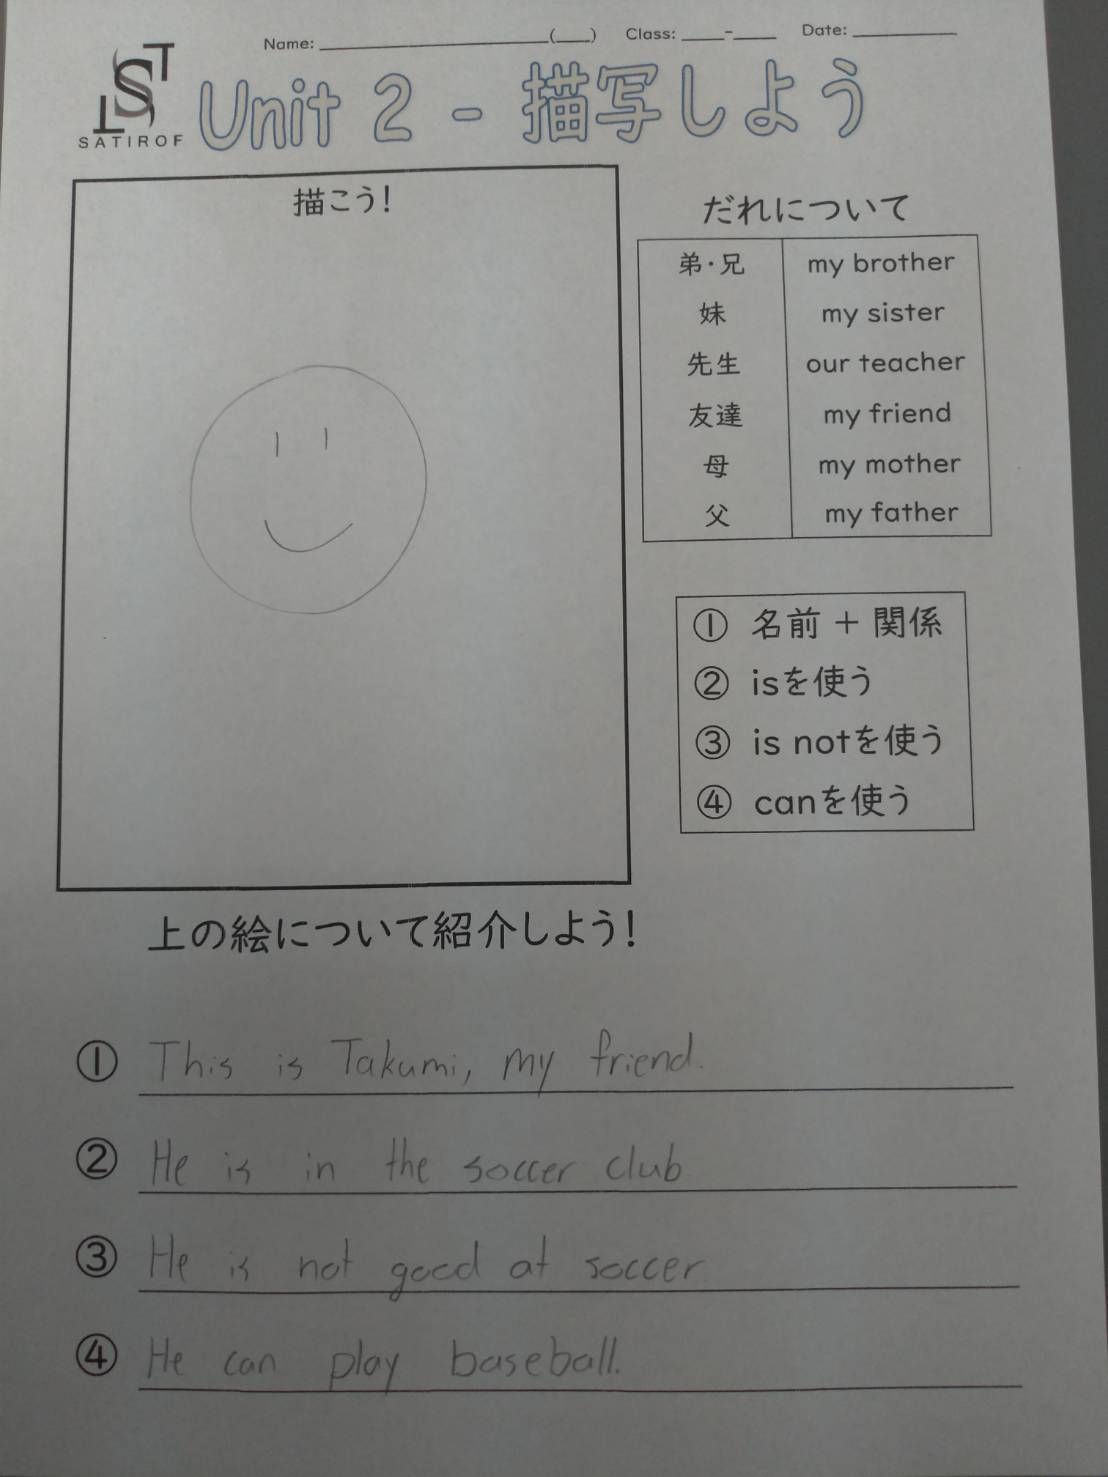 Name: ____________ (___) Class: ____-____ Date: ________
LST
SATIROF
Unit 2 - 描写しよう
描こう!
だれについて
弟・兄 my brother
妹 my sister
先生 our teacher
友達 my friend
母 my mother
父 my father
① 名前 + 関係
② isを使う
③ is notを使う
④ canを使う
上の絵について紹介しよう!
① This is Takumi, my friend.
② He is in the soccer club
③ He is not good at soccer
④ He can play baseball.